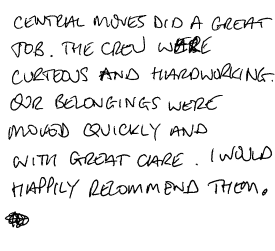 CENTRAL MOVES DID A GREAT
JOB. THE CREW WERE
CURTEOUS AND HARDWORKING.
OUR BELONGINGS WERE
MOVED QUICKLY AND
WITH GREAT CARE. I WOULD
HAPPILY RECOMMEND THEM.